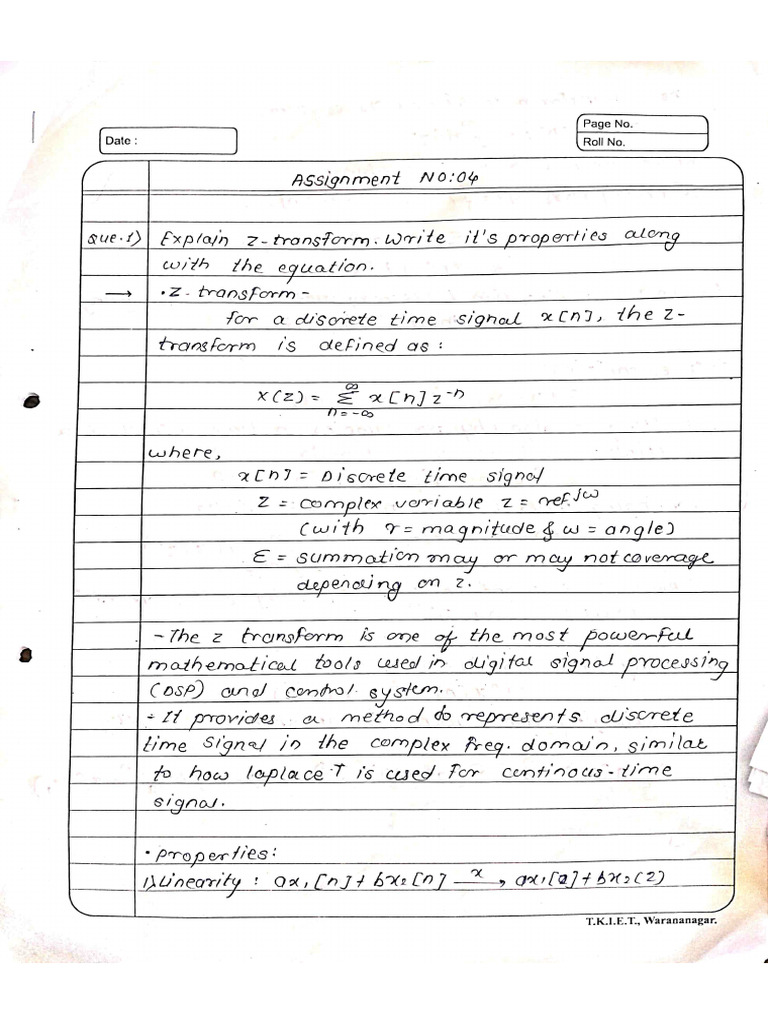 Date :
Page No.
Roll No.
Assignment NO:04
Que.1) Explain z-transform. Write it's properties along
with the equation.
→ • Z-transform-
for a discrete time signal x[n], the z-
transform is defined as:
X(z) = ∞ Σ n=-∞ x[n] z⁻ⁿ
where,
x[n] = Discrete time signal
Z = complex variable z =
(with r = magnitude & ω = angle)
Σ = summation may or may not coverage
depending on z.
- The z transform is one of the most powerful
mathematical tools used in digital signal processing
(DSP) and control system.
- It provides a method do represents discrete
time signal in the complex freq. domain, similar
to how laplace T is used for continous-time
signal.
• properties:
1) Linearity : ax₁[n] + bx₂[n] —x→, ax₁[z] + bx₂(z)
T.K.I.E.T., Warananagar.